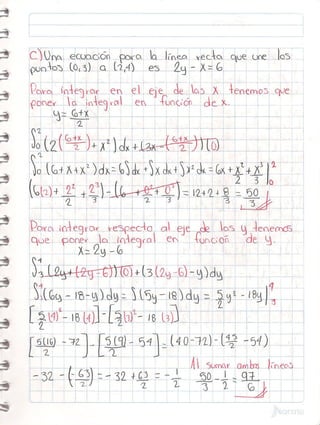 C) Una ecuación para la línea recta que une los
puntos (0,3) a (2,4) es 2y - x = 6
Para integrar en el eje de las x tenemos que
poner la integral en función de x.
y = 6+x / 2
∫₀² (2(6+x / 2) + x²) dx + (3x - (6+x / 2))(0)
∫₀² (6+x+x²) dx = 6∫dx + ∫x dx + ∫x² dx = 6x + x²/2 + x³/3 |₀²
(6(2) + 2²/2 + 2³/3) - (6 + 0²/2 + 0³/3) = 12+2+8/3 = 50/3
Para integrar respecto al eje de las y tenemos
que poner la integral en función de y.
x = 2y - 6
∫₃⁴ (2y + (2y-6)²)(0) + (3(2y-6) - y) dy
∫₃⁴ (6y - 18 - y) dy = ∫(5y - 18) dy = 5/2 y² - 18y |₃⁴
[5/2 (4)² - 18(4)] - [5/2 (3)² - 18(3)]
[5(16)/2 - 72] - [5(9)/2 - 54] = (40-72) - (45/2 - 54)
Al sumar ambas líneas
-32 - (-63/2) = -32 + 63/2 = -1/2 50/3 - 1/2 = 97/6
Norma